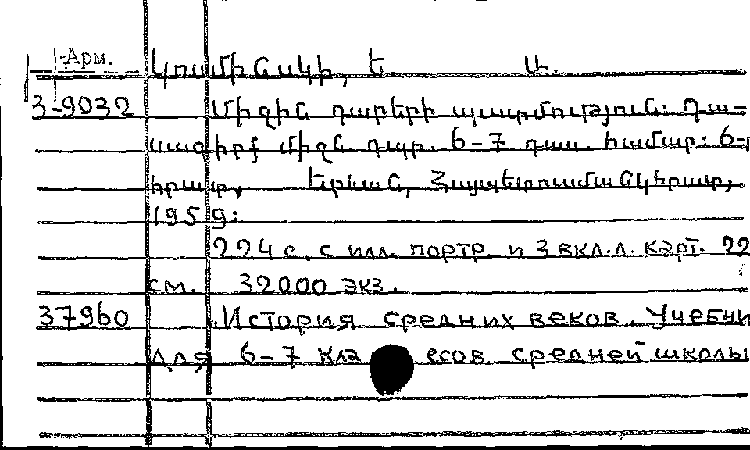 Арм. Կոսմինսկի, Ե. Ա.
3-9032 Միջին դարերի պատմություն: Դա-
սագիրք միջն. դպր. 6-7 դաս. համար: 6-
հրատ., Երևան, Հայպետուսմանկհրատ,
1959:
224 с. с илл. портр. и 3 вкл.л. карт. 22
см. 32000 экз.
37960 История средних веков. Учебни
для 6-7 кла ссов средней школы